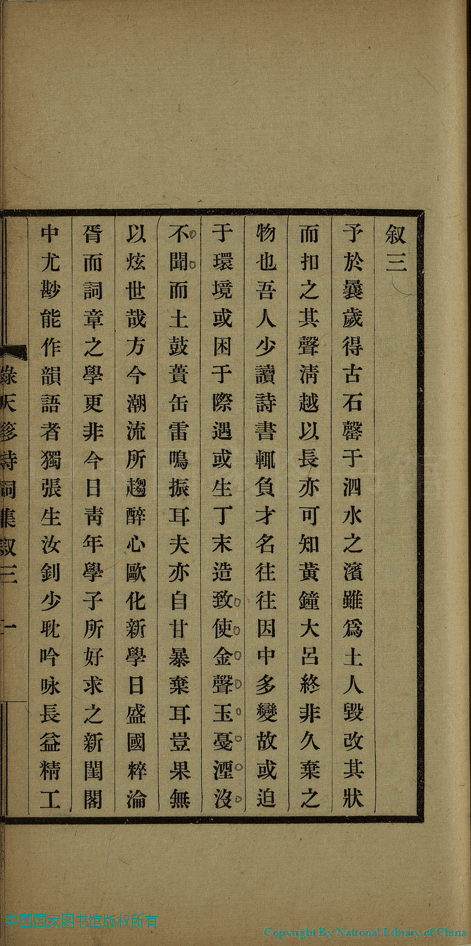 叙三
予於曩歲得古石磬于泗水之濱雖爲土人毀改其狀
而扣之其聲淸越以長亦可知黃鐘大呂終非久棄之
物也吾人少讀詩書輒負才名往往因中多變故或迫
于環境或困于際遇或生丁末造致使金聲玉戞湮沒
不聞而土鼓蕢缶雷鳴振耳夫亦自甘暴棄耳豈果無
以炫世哉方今潮流所趨醉心歐化新學日盛國粹淪
胥而詞章之學更非今日靑年學子所好求之新閨閣
中尤尠能作韻語者獨張生汝釗少耽吟咏長益精工
綠天簃詩詞集叙三 一
Copyright By National Library of China